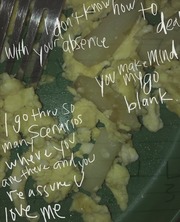 don't know how to deal
with your absence
you make
my MIND
go
blank.
I go thru so
many scenarios
where you
are there and you
reassure u
love me.